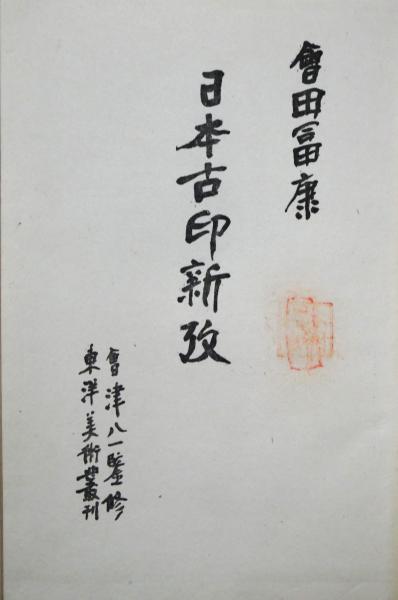 會田富康
日本古印新攷
會津八一監修
東洋美術叢刊